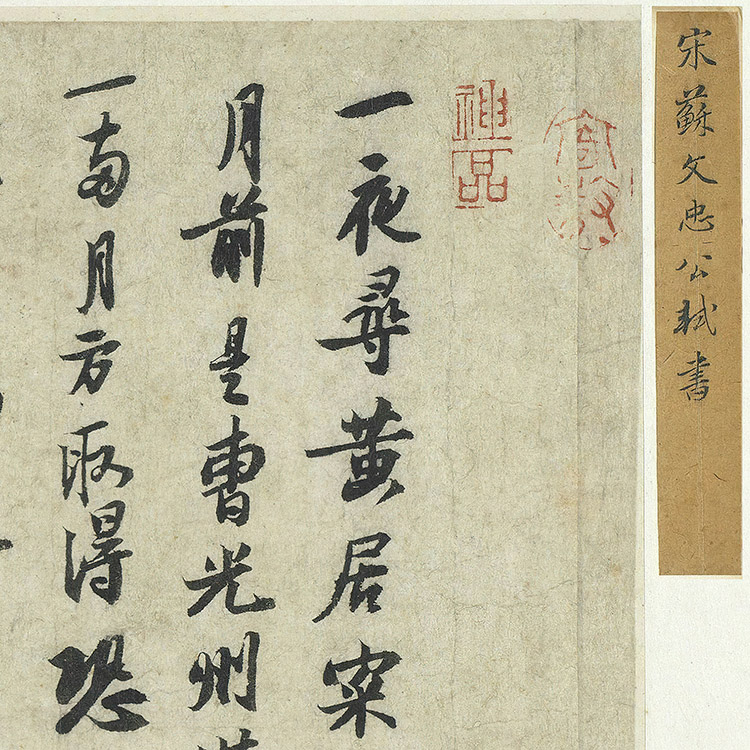 宋蘇文忠公軾書
神品
一夜尋黃居寀
月前是曹光州
一兩月方取得恐